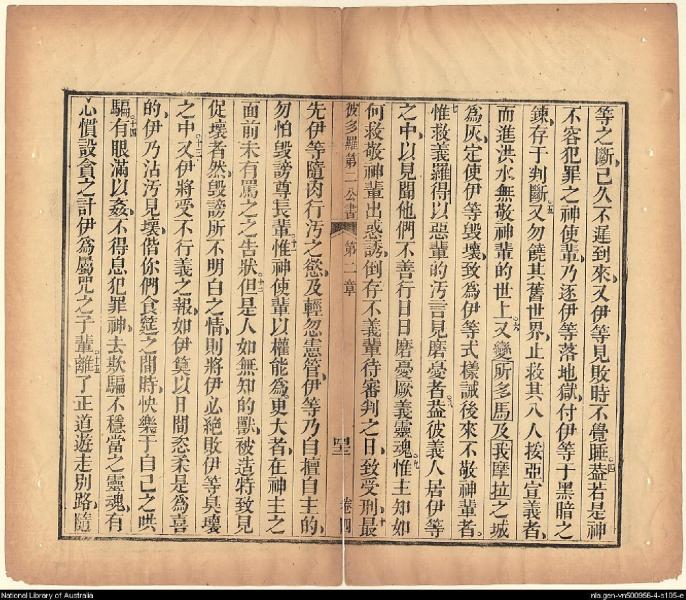 等之斷已久不遲到來又伊等見敗時不覺睡蓋若是神
不容犯罪之神使輩乃逐伊等落地獄付伊等于黑暗之
鍊存于判斷又勿饒其舊世界止救其八人挼亞宣義者
而進洪水無敬神輩的世上又變所多馬及我摩拉之城
爲灰定使伊等毀壞致爲伊等式樣誡後來不敬神輩者
惟救義羅得以惡輩的汚言見磨憂者蓋彼義人居伊等
之中以見聞他們不善行日日磨憂厥義靈魂惟主知如
何救敬神輩出惑誘倒存不義輩待審判之日致受刑最
彼多羅第二公書 第二章 卷四
先伊等隨肉行汚之慾及輕忽憲管伊等乃自擅自主的
勿怕毀謗尊長輩惟神使輩以權能爲更大者在神主之
面前未有罵之之吿狀但是人如無知的獸被造特致見
促壞者然毀謗所不明白之情則將伊必絕敗伊等具壞
之中又伊將受不行義之報如伊算以日間恣柔是爲喜
的伊乃沾汚見壞偕你們食筵之間時快樂于自己之哄
騙有眼滿以姦不得息犯罪神去欺騙不穩當之靈魂有
心慣設貪之計伊爲屬咒之子輩離了正道遊走別路隨
National Library of Australia
nla.gen-vn500956-4-s105-e